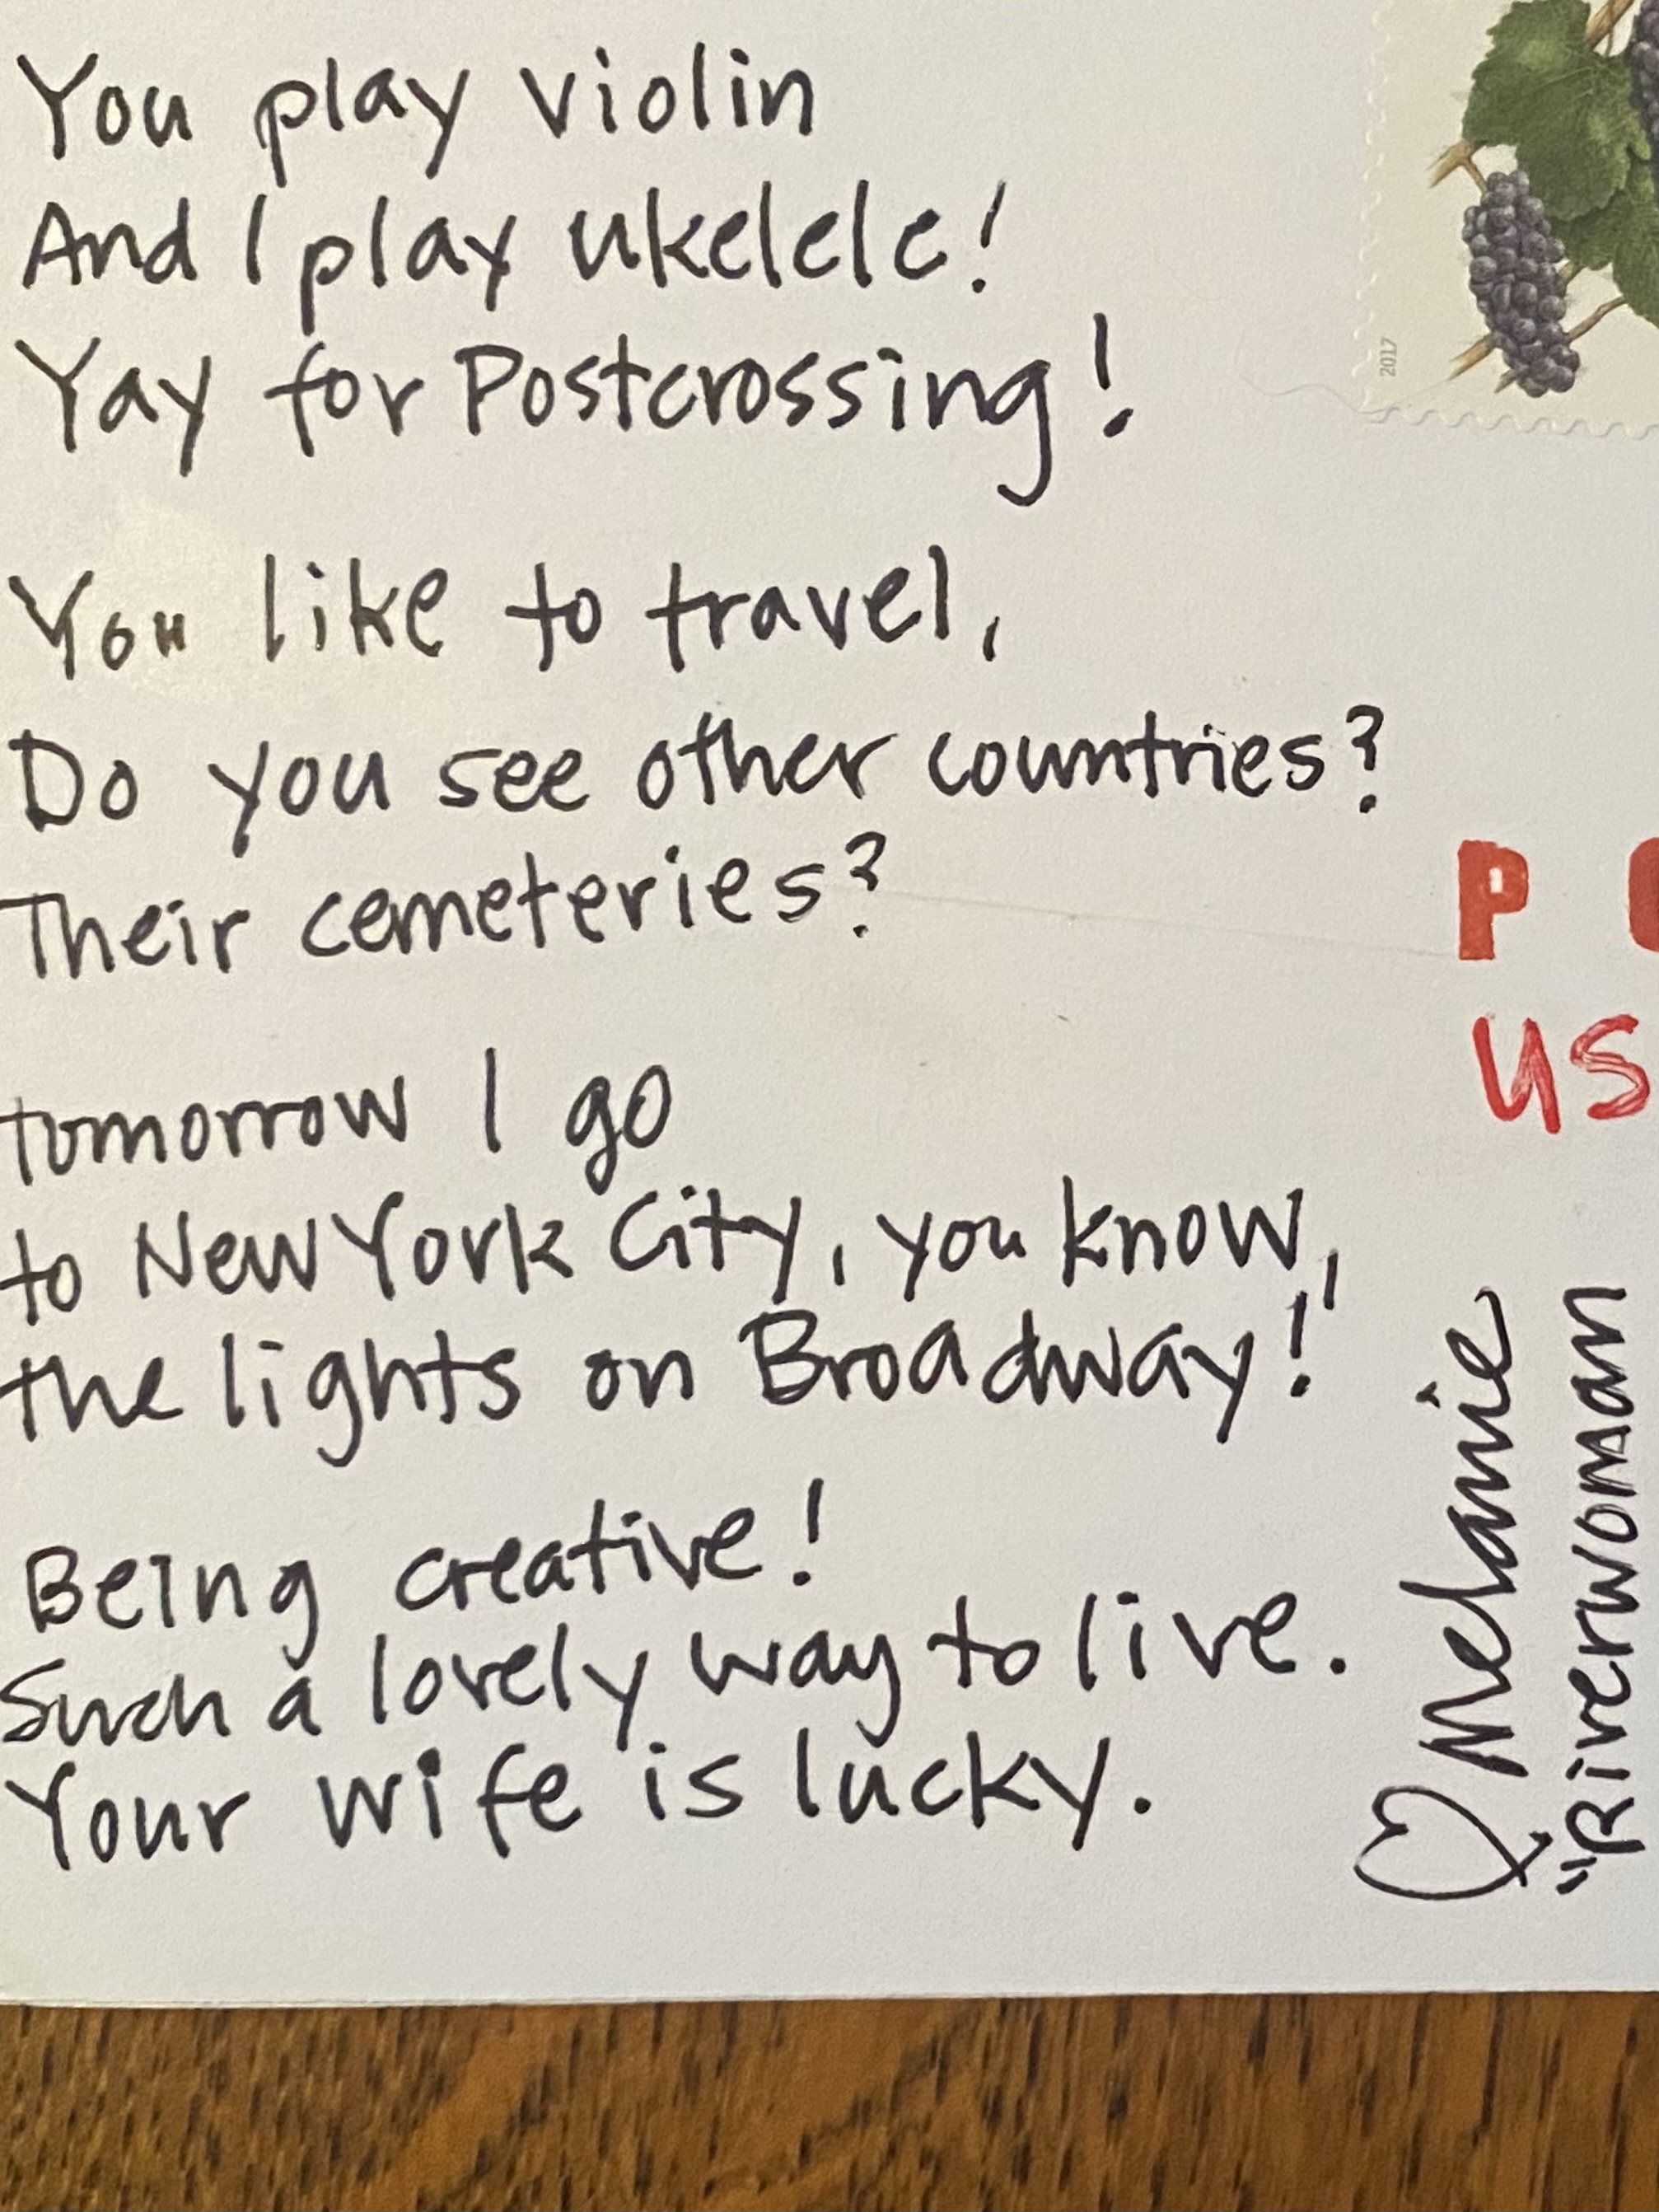 You play violin
And I play ukelele!
Yay for Postcrossing!
You like to travel,
Do you see other countries?
Their cemeteries?
tomorrow I go
to New York City, you know,
the lights on Broadway!
Being creative!
Such a lovely way to live.
Your wife is lucky.
♡ Melanie
"Riverwoman
2017
P
US